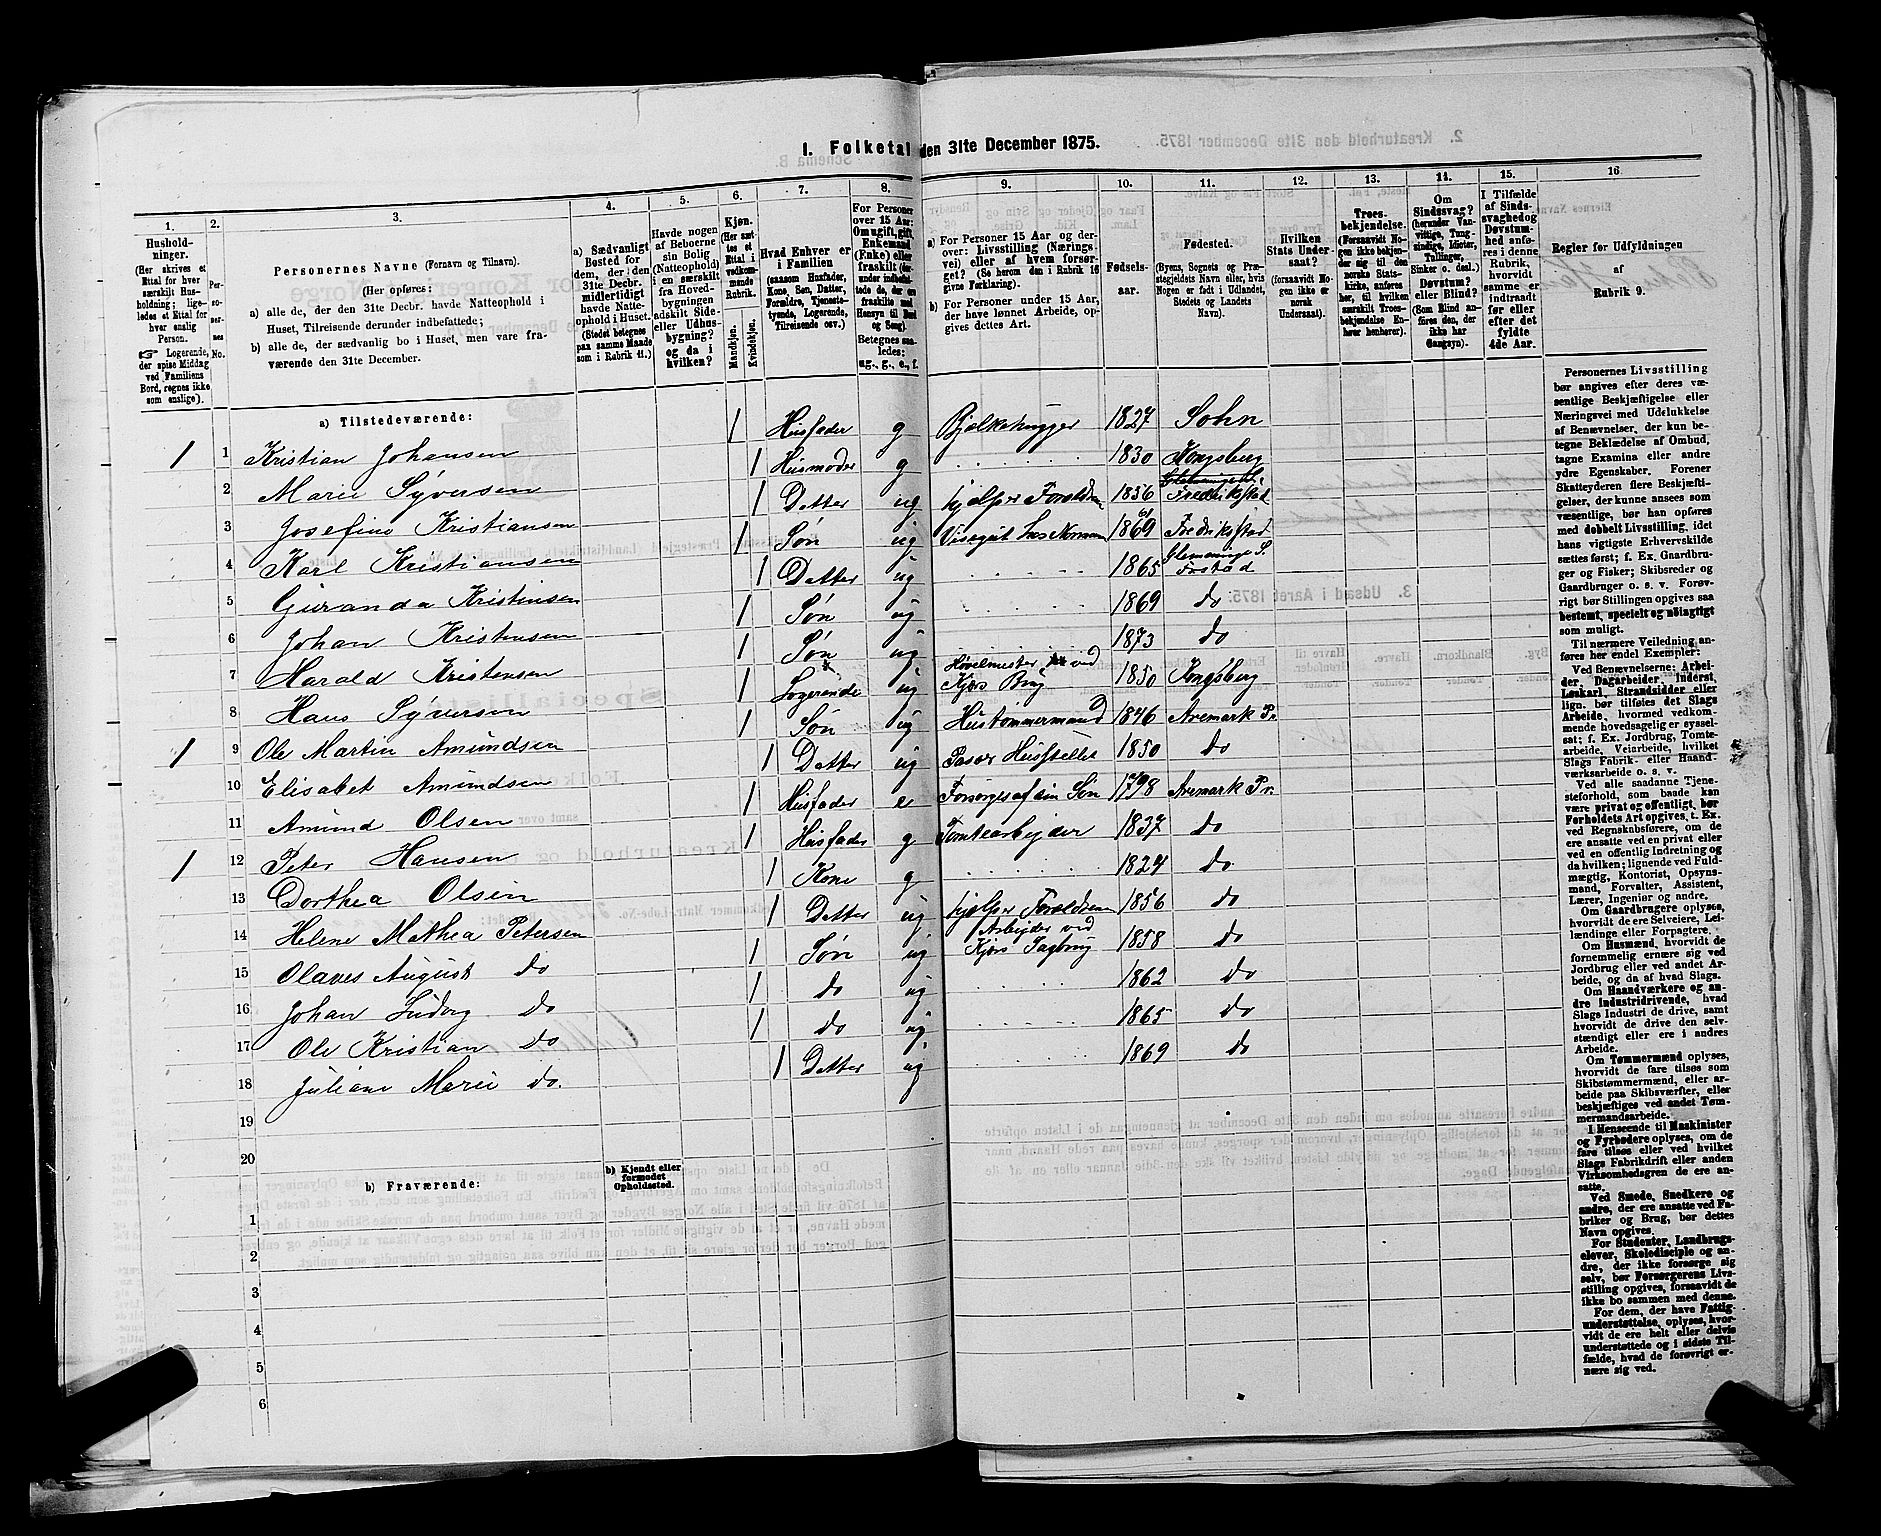 1. Folketal den 31te December 1875.
1.
2.
3.
4.
5.
6.
7.
8.
9.
10.
11.
12.
13.
14.
15.
16.
Husholdninger.
(Her skrives et Ettal for hver særskilt Husholdning; ligeledes et Ettal for hver enslig Person.
Logerende, der spise Middag ved Familiens Bord, regnes ikke som enslige).
Personernes No.
Personernes Navne (Fornavn og Tilnavn).
(Her opføres:
a) alle de, der den 31te Decbr. havde Natteophold i Huset, Tilreisende derunder indbefattede;
b) alle de, der sædvanlig bo i Huset, men vare fraværende den 31te December.
a) Sædvanligt Bosted for dem, der den 31te Decbr. midlertidigt havde Natteophold i Huset. (Stedet betegnes paa samme Maade som i Rubrik 11.)
Havde nogen af Beboerne sin Bolig (Natteophold) i en særskilt fra Hovedbygningen adskilt Side- eller Udhusbygning? og da i hvilken?
Kjøn.
(Her sættes et Ettal i vedkommende Rubrik.
Mandkjøn.
Kvindekjøn.
Hvad Enhver er i Familien
(saasom Husfader, Kone, Søn, Datter, Forældre, Tjenestetyende, Logerende, Tilreisende osv.)
For Personer over 15 Aar: Om ugift, gift, Enkemand (Enke) eller fraskilt
Betegnes saaledes: ug., g., e., f.
a) For Personer 15 Aar og derover: Livsstilling (Næringsvei) eller af hvem forsørget? (Se herom den i Rubrik 16 givne Forklaring).
b) For Personer under 15 Aar, der have lønnet Arbeide, opgives dettes Art.
Fødselsaar.
Fødested.
(Byens, Sognets og Præstegjeldets Navn eller, hvis Nogen er født i Udlandet, Stedets og Landets Navn).
Hvilken Stats Undersaat?
(forsaavidt Nogen ikke er norsk Undersaat).
Troesbekjendelse.
(Forsaavidt Nogen ikke bekjender sig til den norske Statskirke, anføres her, til hvilken særskilt Troesbekjendelse Enhver henhører).
Om Sindssvag? (herunder Vanvittige, Tungsindige, Idioter, Tullinger, Sinker o. desl.) Døvstum? eller Blind? (Som Blind anføres den, der ikke har Gangsyn).
I Tilfælde af Sindssvaghed og Døvstumhed anføres i denne Rubrik, hvorvidt samme er indtraadt før eller efter det fyldte 4de Aar.
Regler for Udfyldningen af Rubrik 9.
a) Tilstedeværende:
1 1 Kristian Johansen 1 Husfader g Bjelkehugger 1827 Sohn
2 Marie Syversen 1 Husmoder g 1830 Kongsberg
3 Josefine Kristiansen 1 Datter ug hjelper Foreldren 1856 Fredrikstad
4 Karl Kristiansen 1 Søn ug 1861 Fredrikstad
5 Guranda Kristinsen 1 Datter ug 1865 Glemminge S. Frstad
6 Johan Kristensen 1 Søn ug 1869 do
7 Harald Kristensen 1 Søn ug 1873 do
8 Hans Syversen 1 Logerende ug Høvelmester ved Kjærs Brug 1850 Kongsberg
1 9 Ole Martin Amundsen 1 Søn ug Hustømmermand 1846 Aremark Pr.
10 Elisabet Amundsen 1 Datter ug Passer Husstellet 1850 do
11 Amund Olsen 1 Husfader e Forsørges af sin Søn 1798 Aremark Pr.
1 12 Peter Hansen 1 Husfader g Tomtearbejder 1837 do
13 Dorthea Olsen 1 Kone g 1824 do
14 Helene Mathea Petersen 1 Datter ug hjelper Foreldrene 1856 do
15 Olaves August do 1 Søn ug Arbejder ved Kjærs Sagbrug 1858 do
16 Johan Ludvig do 1 do ug 1862 do
17 Ole Kristian do 1 do ug 1865 do
18 Juliane Marie do. 1 Datter ug 1869 do
19
20
b) Fraværende:
b) Kjendt eller formodet Opholdssted.
1
2
3
4
5
6
Personernes Livsstilling bør angives efter deres væsentlige Beskjæftigelse eller Næringsvei med Udelukkelse af Benævnelser, der kun betegne Beklædelse af Ombud, tagne Examina eller andre ydre Egenskaber. Forener Skatteyderen flere Beskjæftigelser, der kunne ansees som væsentlige, bør han opføres med dobbelt Livsstilling, idet hans vigtigste Erhvervskilde sættes først; f. Ex. Gaardbruger og Fisker; Skibsreder og Gaardbruger o. s. v. Forøvrigt bør Stillingen opgives saa bestemt, specielt og nøiagtigt som muligt.
Til nærmere Veiledning anføres her endel Exempler:
Ved Benævnelserne: Arbeider, Dagarbeider, Inderst, Løskarl, Strandsidder eller lign. bør tilføies det Slags Arbeide, hvormed vedkommende hovedsagelig er sysselsat; f. Ex. Jordbrug, Tomtearbeide, Veiarbeide, hvilket Slags Fabrik- eller Haandværksarbeide o. s. v.
Ved alle saadanne Tjenesteforhold, som baade kan være privat og offentligt, bør Forholdets Art opgives, t. Ex. ved Regnskabsførere, om de ere ansatte ved en privat eller ved en offentlig Indretning og da hvilken; lignende ved Fuldmægtig, Kontorist, Opsynsmand, Forvalter, Assistent, Lærer, Ingeniør og andre.
Om Gaardbrugere oplyses, hvorvidt de ere Selveiere, Leilændinge eller Forpagtere.
Om Husmænd, hvorvidt de fornemmelig ernære sig ved Jordbrug eller ved andet Arbeide, og da af hvad Slags.
Om Haandværkere og andre Industridrivende, hvad Slags Industri de drive, samt hvorvidt de drive den selvstændigt eller ere i andres Arbeide.
Om Tømmermænd oplyses, hvorvidt de fare tilsøs som Skibstømmermænd, eller arbeide paa Skibsværfter, eller beskjæftiges ved andet Tømmermandsarbeide.
I Henseende til Maskinister og Fyrbødere oplyses, om de fare tilsøs eller ved hvilket Slags Fabrikdrift eller anden Virksomhedsgren de ere ansatte.
Ved Smede, Snedkere og andre, der ere ansatte ved Fabriker og Brug, bør dettes Navn opgives.
For Studenter, Landbrugselever, Skoledisciple og andre, der ikke forsørge sig selv, bør Forsørgerens Livsstilling opgives, forsaavidt de ikke bo sammen med denne.
For dem, der have Fattigunderstøttelse, oplyses, hvorvidt de ere helt eller delvis understøttede og i sidste Tilfælde, hvad de forøvrigt ernære sig ved.